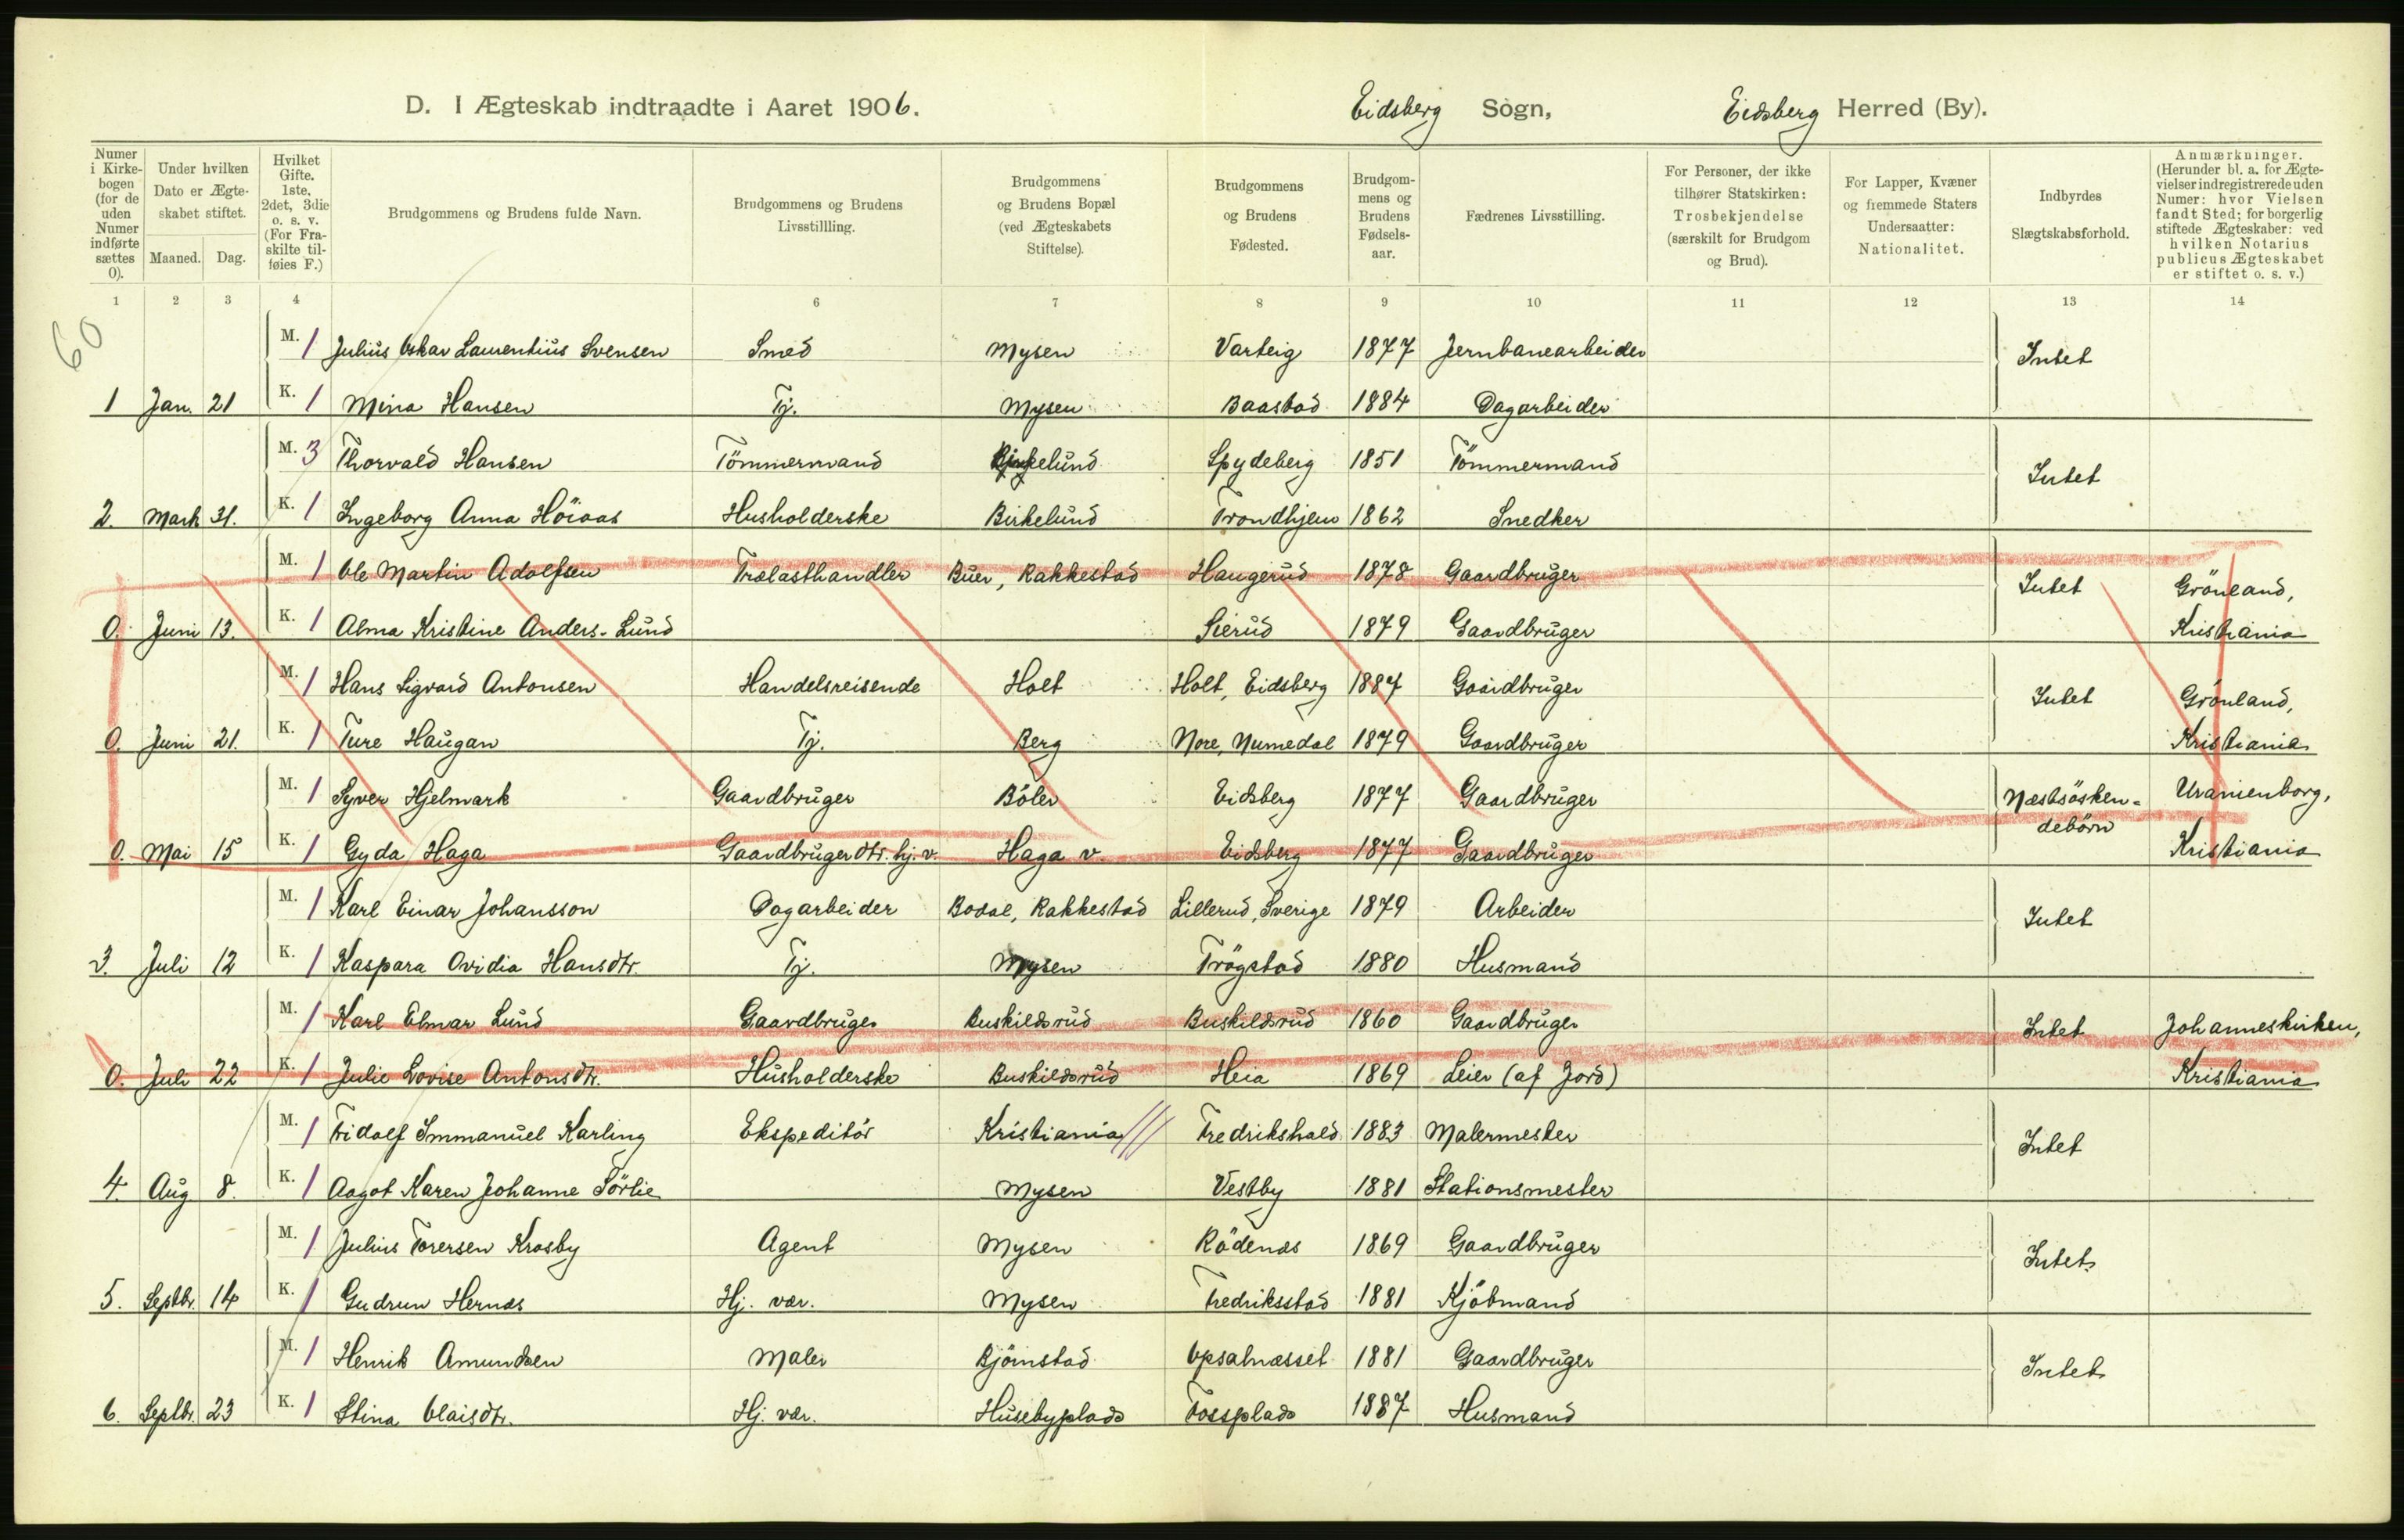 D. I Ægteskab indtraadte i Aaret 1906. Eidsberg Sogn, Eidsberg Herred (By).
Numer i Kirkebogen (for de uden Numer indførte sættes 0).
Under hvilken Dato er Ægteskabet stiftet.
Maaned. Dag.
Hvilket Gifte. 1ste, 2det, 3die o. s. v. (For Fraskilte tilføies F.)
Brudgommens og Brudens fulde Navn.
Brudgommens og Brudens Livsstillling.
Brudgommens og Brudens Bopæl (ved Ægteskabets Stiftelse).
Brudgommens og Brudens Fødested.
Brudgommens og Brudens Fødselsaar.
Fædrenes Livsstilling.
For Personer, der ikke tilhører Statskirken: Trosbekjendelse (særskilt for Brudgom og Brud).
For Lapper, Kvæner og fremmede Staters Undersaatter: Nationalitet.
Indbyrdes Slægtskabsforhold.
Anmærkninger. (Herunder bl. a. for Ægtevielser indregistrerede uden Numer: hvor Vielsen fandt Sted; for borgerlig stiftede Ægteskaber: ved hvilken Notarius publicus Ægteskabet er stiftet o. s. v.)
1 2 3 4 6 7 8 9 10 11 12 13 14
60
M. 1 Julius Oskar Laurentius Svensen Smed Mysen Varteig 1877 Jernbanearbeider Intet
1 Jan. 21 K. 1 Mina Hansen Tj. Mysen Baastad 1884 Dagarbeider
M. 3 Thorvald Hansen Tömmermand Spydeberg 1851 Tömmermand Intet
2. Mark 31. K. 1 Ingeborg Anna Höiaas Husholderske Birkelund Trondhjem 1862 Snedker
M. 1 Ole Martin Adolfsen Trælasthandler Buer, Rakkestad Haugerud 1878 Gaardbruger Intet Grönland,
0. Juni 13. K. 1 Alma Kristine Anders. Lund Sierud 1879 Gaardbruger Kristiania
M. 1 Hans Sigvard Antonsen Handelsreisende Holt Holt, Eidsberg 1887 Gaardbruger Intet Grönland,
0. Juni 21. K. 1 Ture Haugan Tj. Berg Nore, Numedal 1879 Gaardbruger Kristiania
M. 1 Syver Hjelmark Gaardbruger Böler Eidsberg 1877 Gaardbruger Næstsösken- Uranienborg,
debörn
0. Mai 15 K. 1 Gyda Haga Gaardbrugerdtr. hj. v. Haga v. Eidsberg 1877 Gaardbruger Kristiania
M. 1 Karl Einar Johansson Dagarbeider Bodal, Rakkestad Lillerud, Sverige 1879 Arbeider Intet
3. Juli 12 K. 1 Kaspara Ovidia Hansdtr. Tj. Mysen Trögstad 1880 Husmand
M. 1 Karl Elmar Lund Gaardbruger Buskildsrud Buskildsrud 1860 Gaardbruger Intet Johanneskirken,
0. Juli 22 K. 1 Julie Lovise Antonsdtr. Husholderske Buskildsrud Heia 1869 Leier (af Jord) Kristiania
M. 1 Fridolf Immanuel Karling Ekspeditör Kristiania Fredrikshald 1883 Malermester Intet
4. Aug 8. K. 1 Aagot Karen Johanne Sörlie Mysen Vestby 1881 Stationsmester
M. 1 Julius Torersen Krosby Agent Mysen Rödenæs 1869 Gaardbruger Intet
5. Septbr. 14 K. 1 Gudrun Hernæs Hj. vær. Mysen Fredriksstad 1881 Kjöbmand
M. 1 Henrik Amundsen Maler Bjömstad Opsalnæsset 1881 Gaardbruger Intet
6. Septbr. 23 K. 1 Stina Olaisdtr. Hj. vær. Husebyplads Fossplads 1887 Husmand